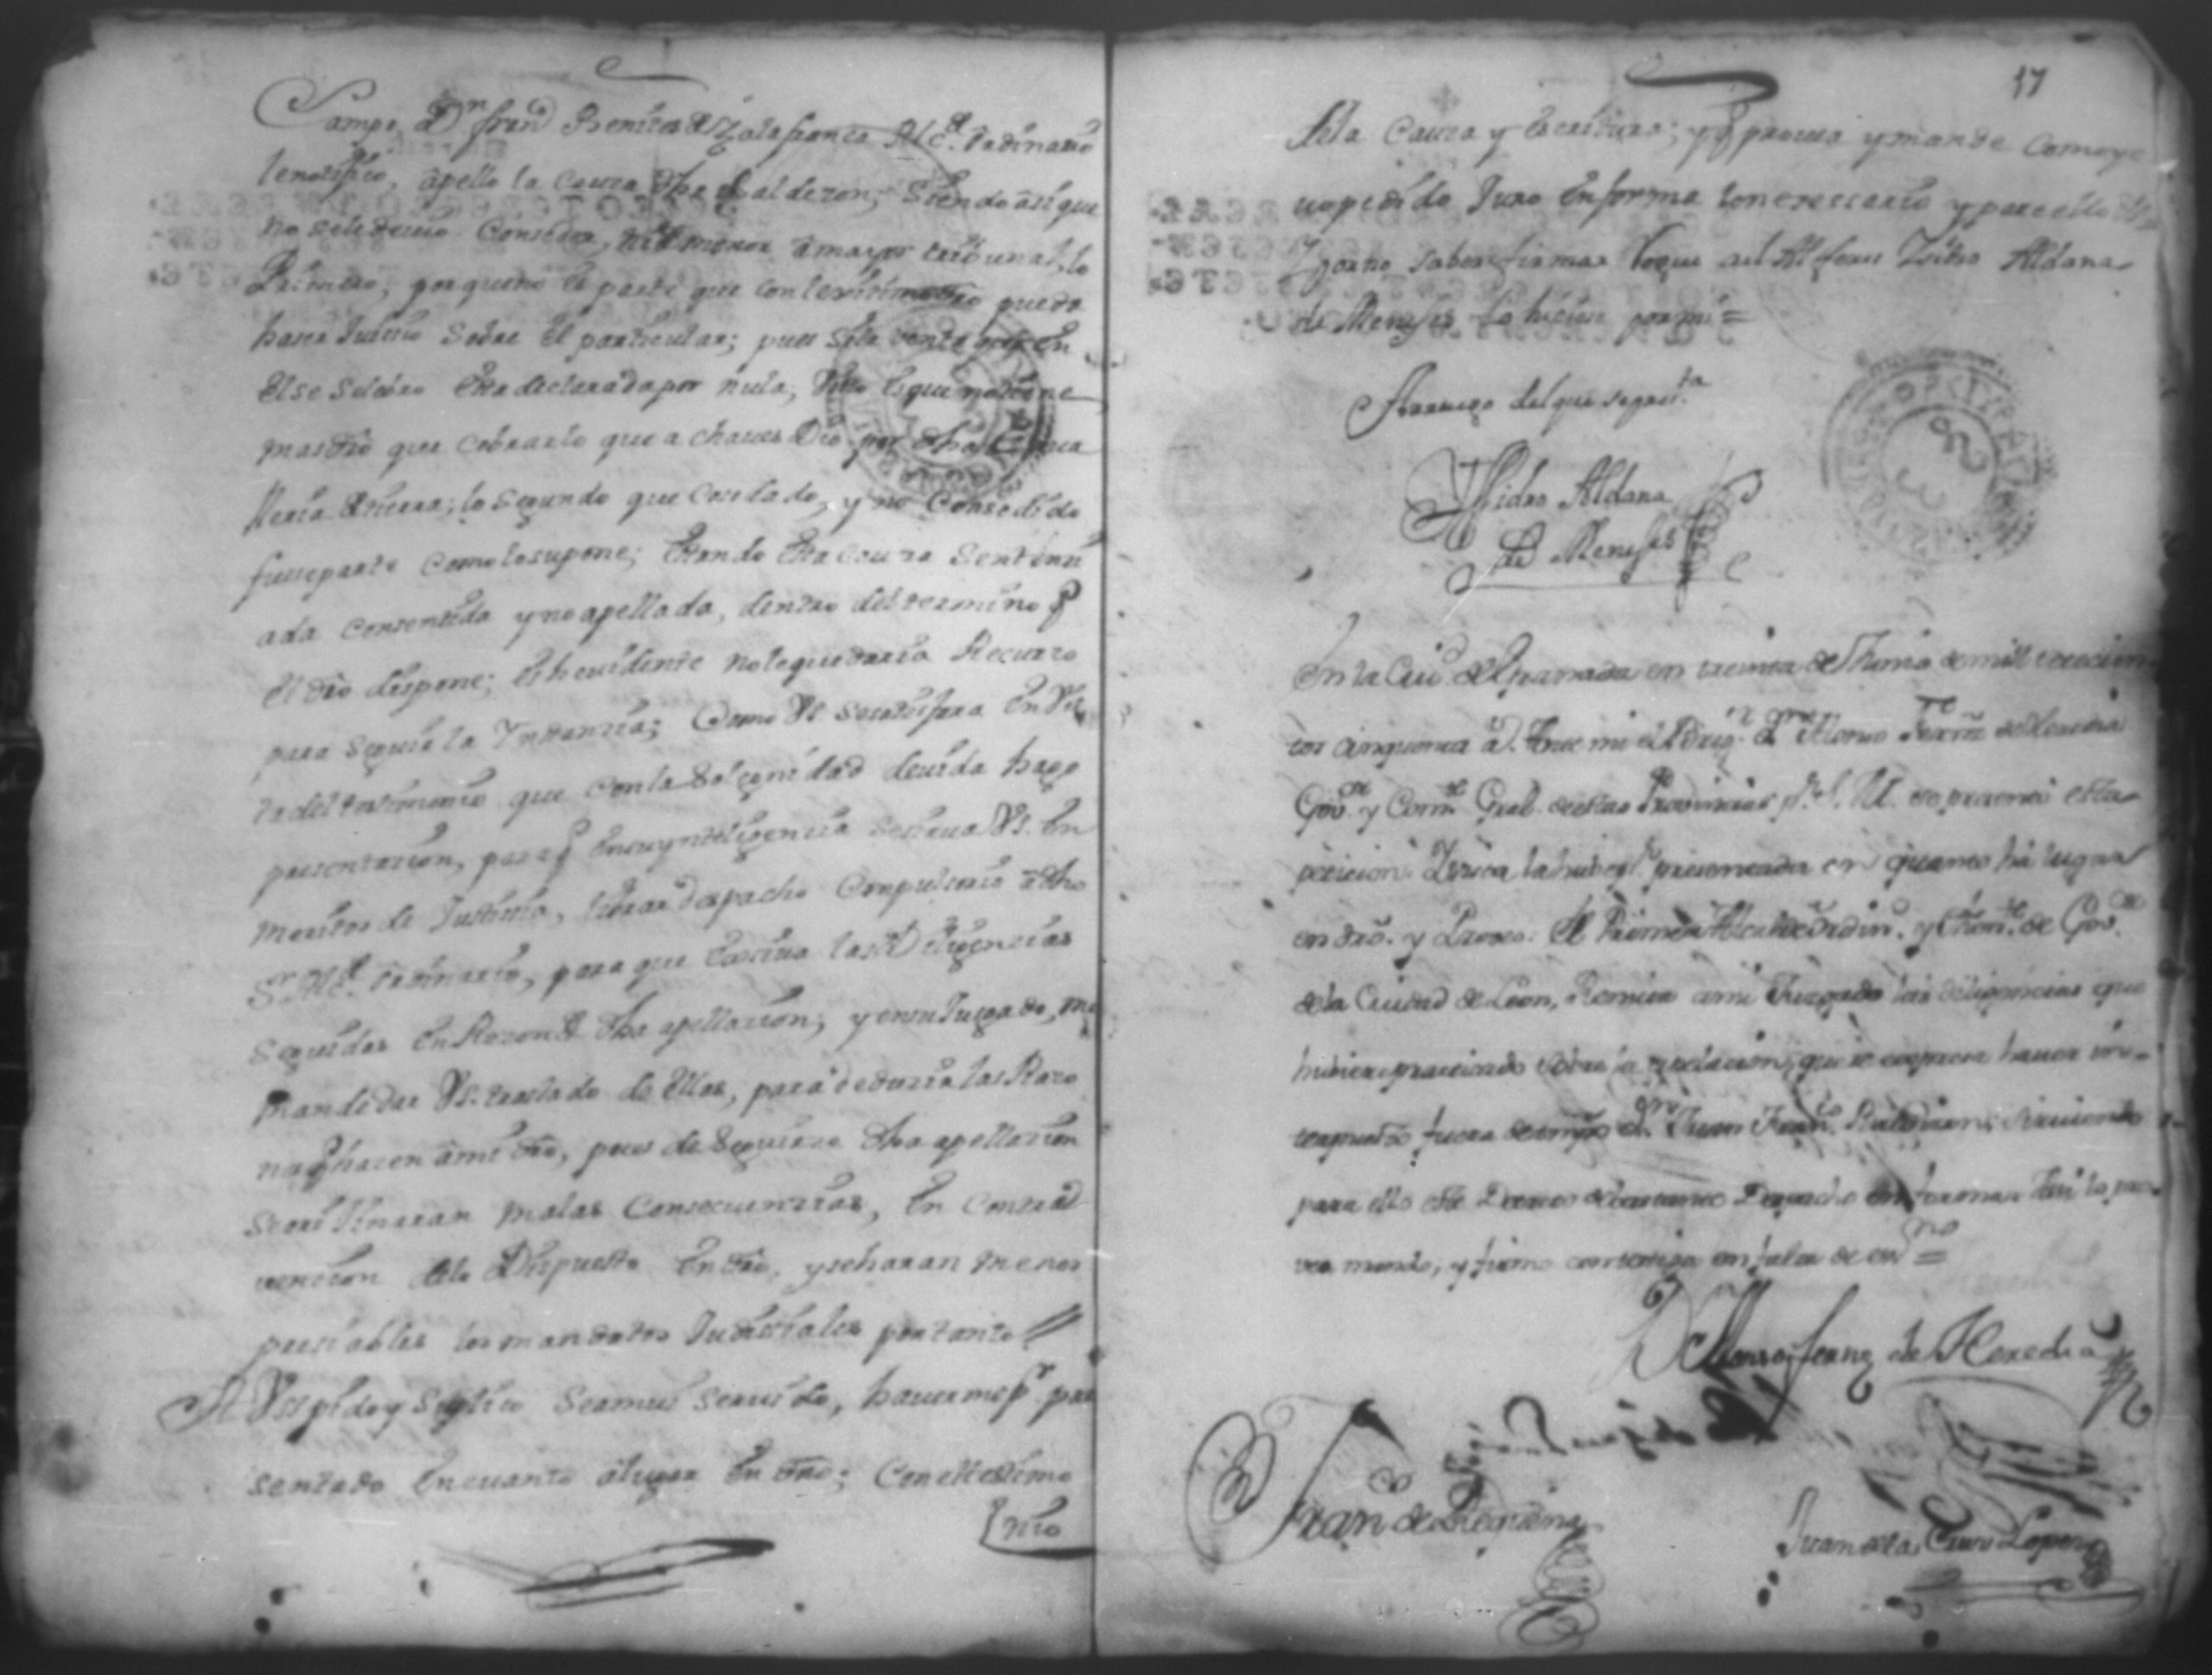 Campo, Dn. Franco Benites de Zalafranca Alce. Ordinario
lenotifico, apello la Causa dha Calderon; Siendo asi que
no sele devio Conseder, del menor a mayor tribunal, lo
Primero, porqueno es parte que con lexitimo dro pueda
haser Juisio sobre el particular; pues sila venta
Else Selebro Esta declarada por nula, es que notiene
mas dro que Cobrarlo que a chaves Dio por dha
de tierra; lo segundo que Caso dado, y no Consedido
fuese parte como lo supone; Estando Esta Causa Sentensi
ada Consentida y no apellada, dentro del termino q
El dro dispone; Es hevidente no le quedaria Recurso
para Seguir la Ynstansia; Como VS. se satisfara En Vis
ta del testimonio que con la Solegnidad devida hago
presentasion, para q En su ynteligensia se sirva VS. En
meritos de Justisia, librar despacho Compulsorio a dho
Sr. Alce. Ordinario, para que Escriva las Diligensias
Seguidas En Razon de dha apellasion; y en su Jusgado, me
mande dar VS. traslado de Ellas, para dedusir las Raso
nes q hasen a mi dro, pues de Seguirse dha apellasion
Se orijinaran malas Consecuensias, En Contra
vension delo Dispuesto En dro, y se haran menos
presiables los mandatos Judisiales por tanto //
A VS. pido y Suplico Se a mui Servido, haverme pr. pre
sentado En cuanto a lugar En dro; Con el testimo
nio
17
dela Causa y Escritura; y q provea y mande como ye
vo pedido Juro En forma lo nesessario y para ello
Y por no saber firmar Rogue al Alferes Ysidro Aldana
de Meneses lo hisiese por mi =
Arruego del que representa
Ysidro Aldana
de Meneses
En la Ciud. de Granada en treinta de Junio de mill setecien
tos cinquenta a. Ante mi el Brigr. Dn. Alonso Fernz de Heredia
Govr. y Comte. Gral. de estas Provincias pr. S. M. se presento esta
peticion. Y vista la hube pr. presentada en quanto ha lugar
en dro. y Proveo: El Primer Alcalde Ordino. y Thente. de Govr.
de la Ciudad de Leon, Remita a mi Juzgado las diligencias que
hubiere practicado sobre la apelacion, que se expresa haver in
terpuesto fuera de tmpo Dn. Juan Franco. Calderon; sirviendo
para ello este Decreto de bastante Despacho en forma. Asi lo pro
veo, mando, y firmo con testigos en falta de essno =
Dn Alonso Fernz de Heredia
Franco de Requena
Juan de la Cruz Lopez